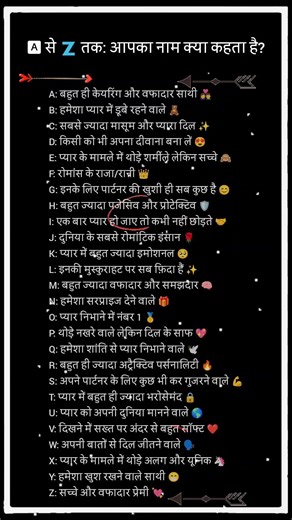 🅰️ से 💤 तक: आपका नाम क्या कहता है?
A: बहुत ही केयरिंग और वफादार साथी 💑
B: हमेशा प्यार में डूबे रहने वाले 🧸
C: सबसे ज्यादा मासूम और प्यारा दिल ✨
D: किसी को भी अपना दीवाना बना लें 😍
E: प्यार के मामले में थोड़े शर्मीले लेकिन सच्चे 🙈
F: रोमांस के राजा/रानी 👑
G: इनके लिए पार्टनर की खुशी ही सब कुछ है 😊
H: बहुत ज्यादा पजेसिव और प्रोटेक्टिव 🛡️
I: एक बार प्यार हो जाए तो कभी नहीं छोड़ते 🤝
J: दुनिया के सबसे रोमांटिक इंसान 🌹
K: प्यार में बहुत ज्यादा इमोशनल 🥺
L: इनकी मुस्कुराहट पर सब फ़िदा हैं ✨
M: बहुत ज्यादा वफादार और समझदार 🧠
N: हमेशा सरप्राइज देने वाले 🎁
O: प्यार निभाने में नंबर 1 🥇
P: थोड़े नखरे वाले लेकिन दिल के साफ 💖
Q: हमेशा शांति से प्यार निभाने वाले 🕊️
R: बहुत ही ज्यादा अट्रैक्टिव पर्सनालिटी 🔥
S: अपने पार्टनर के लिए कुछ भी कर गुजरने वाले 💪
T: प्यार में बहुत ही ज्यादा भरोसेमंद 🔒
U: प्यार को अपनी दुनिया मानने वाले 🌎
V: दिखने में सख्त पर अंदर से बहुत सॉफ्ट ❤️
W: अपनी बातों से दिल जीतने वाले 🗣️
X: प्यार के मामले में थोड़े अलग और यूनिक 🦄
Y: हमेशा खुश रखने वाले साथी 😁
Z: सच्चे और वफादार प्रेमी 💘